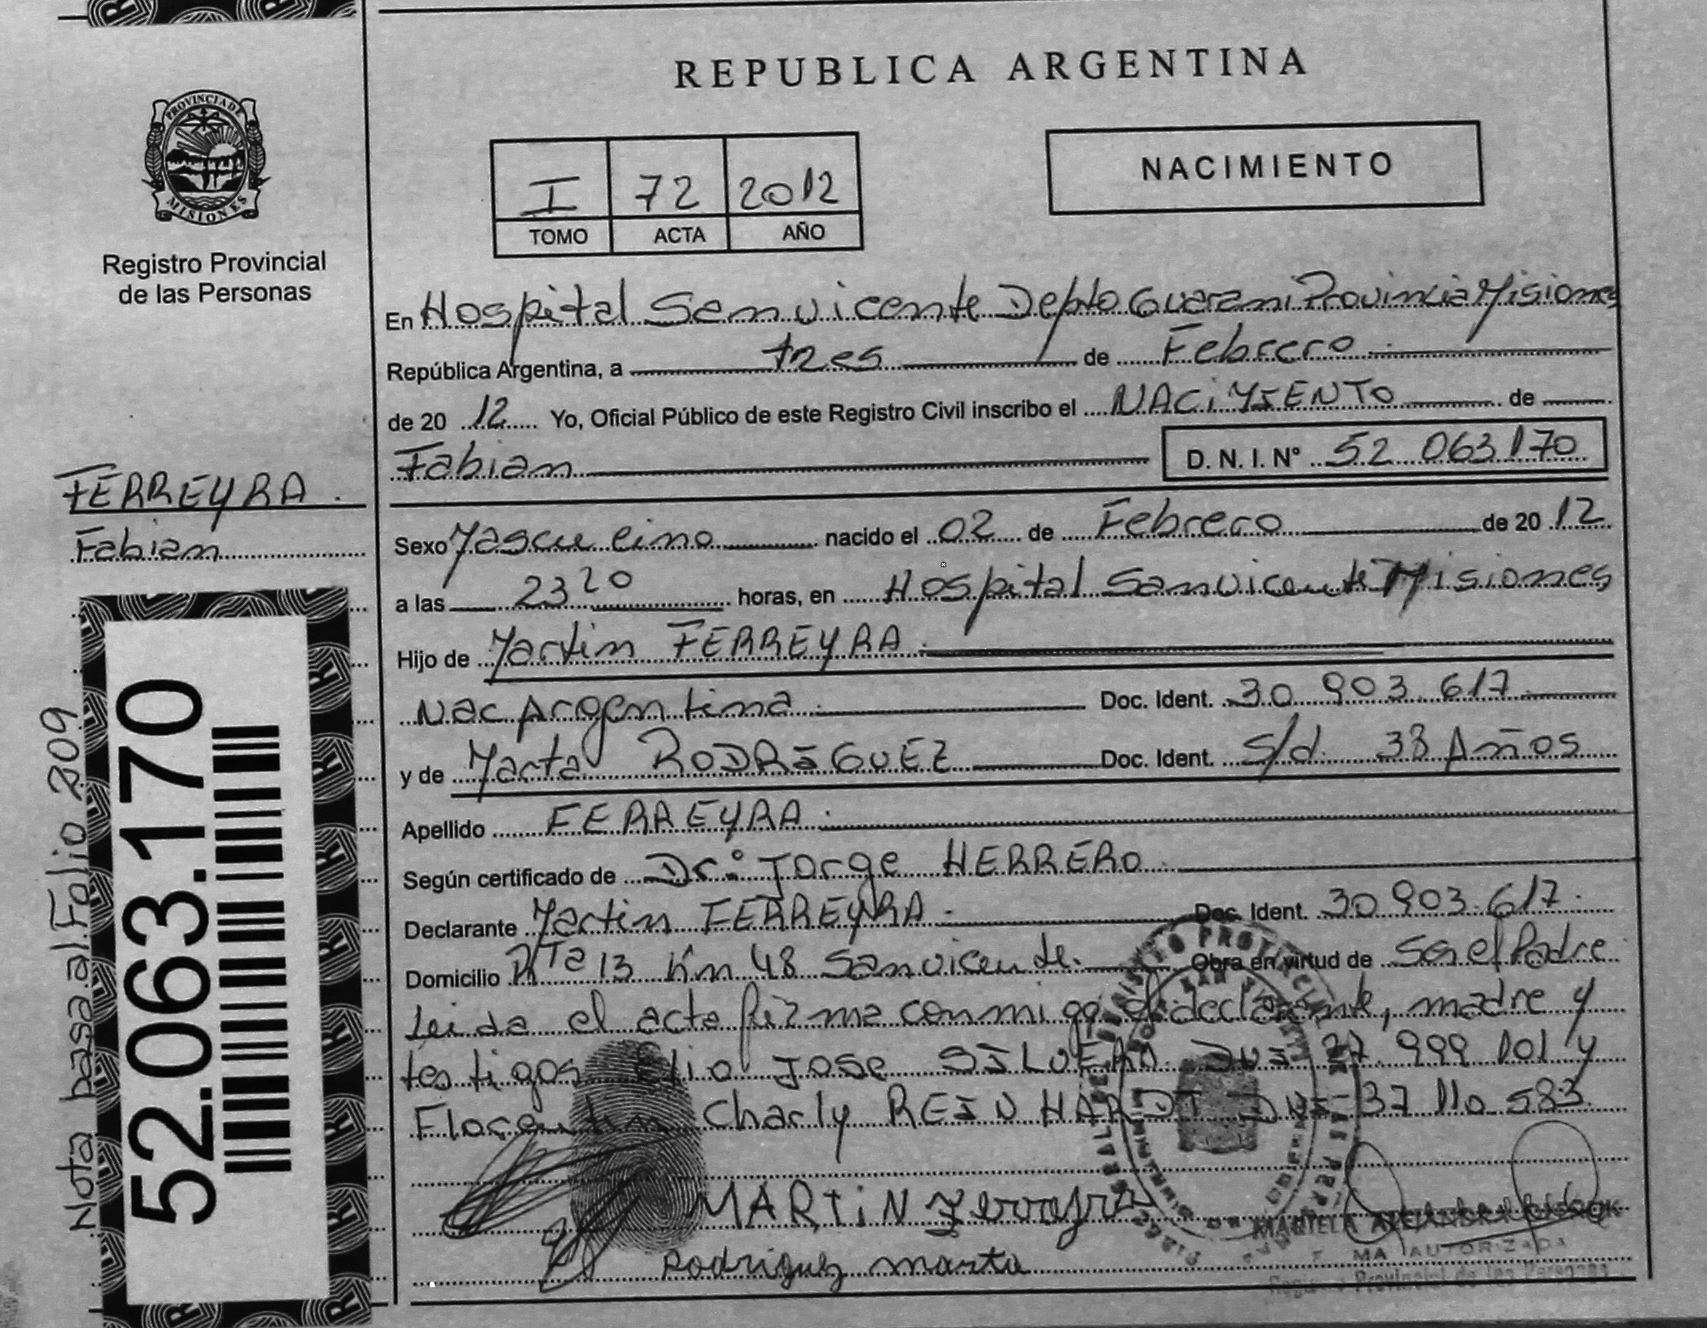 REPUBLICA ARGENTINA
PROVINCIA DE
MISIONES
Registro Provincial
de las Personas
I 72 2012
TOMO ACTA AÑO
NACIMIENTO
En Hospital San vicente Depto Guarani Provincia Misiones
República Argentina, a tres de Febrero
de 20 12 Yo, Oficial Público de este Registro Civil inscribo el NACIMIENTO de
Fabian D. N. I. N° 52 063 170
FERREYRA.
Fabian
Sexo Masculino nacido el 02 de Febrero de 20 12
a las 23 20 horas, en Hospital San vicente Misiones
Hijo de Martin FERREYRA
Nac Argentina Doc. Ident. 30 903 617
y de Marta RODRIGUEZ Doc. Ident. S/d 38 Años
Apellido FERREYRA
Según certificado de Dr: Jorge HERRERO
Declarante Martin FERREYRA Doc. Ident. 30 903 617
Domicilio Rta 13 Km 48 San vicente Obra en virtud de Ser el Padre
Leida el acta firma conmigo el declarante, madre y
testigos Elio Jose SILVERA DNI 999 001 y
Charly REINHARDT DNI 37 110 583
MARTiN Ferreyra
Rodriguez marta
MA AUTORIZADA
Registro Provincial de las Personas
52.063.170
Nota basa al Folio 209